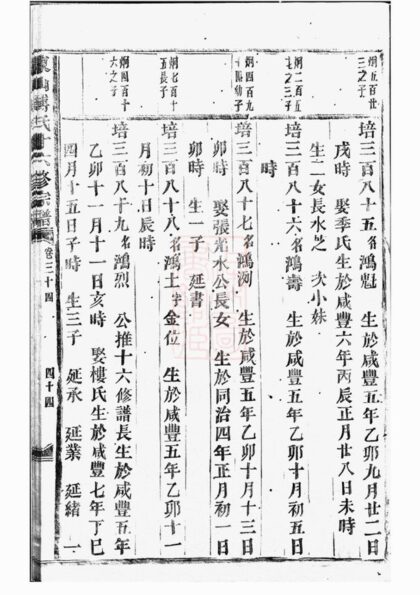 炯五百廿三之子
培三百八十五名鴻魁 生於咸豐五年乙卯九月廿二日
戌時 娶季氏生於咸豐六年丙辰正月廿八日未時
生二女長水芝 次小妹
炯二百五五長子
培三百八十六名鴻壽 生於咸豐五年乙卯十月初五日
時
炯四百九十四幼子
培三百八十七名鴻洌 生於咸豐五年乙卯十月十三日
卯時 娶張光水公長女 生於同治四年正月初一日
卯時 生一子 延書
炯七百十五長子
培三百八十八名鴻土字金位 生於咸豐五年乙卯十一
月初十日辰時
炯四百十六之子
培三百八十九名鴻烈 公推十六修譜長生於咸豐五年
乙卯十一月十一日亥時 娶樓氏生於咸豐七年丁巳
四月十五日子時 生三子 延承 延業 延緒 一
氏十六修宗譜 卷三十四 四十四